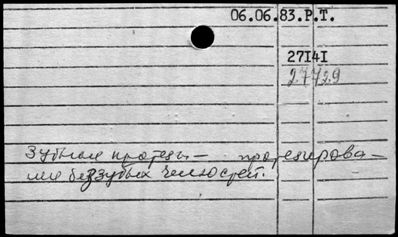 06.06.83.Р.Т.
27I4I
27729
Зубные протезы — протезирова-
ние беззубых челюстей.